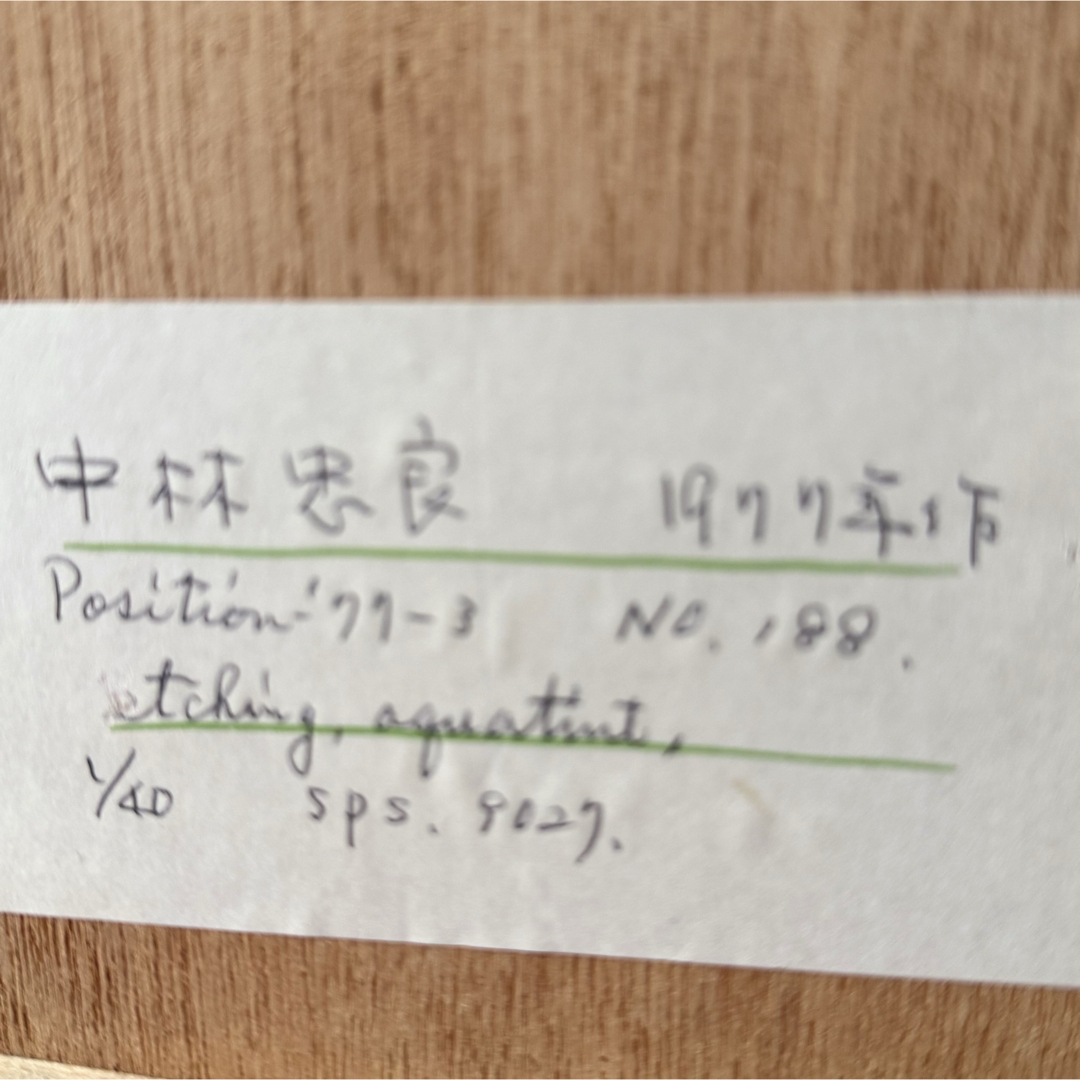 中林忠良 1977年作
Position-'77-3 NO. 188.
etching, aquatint,
1/40 sps. 9027.